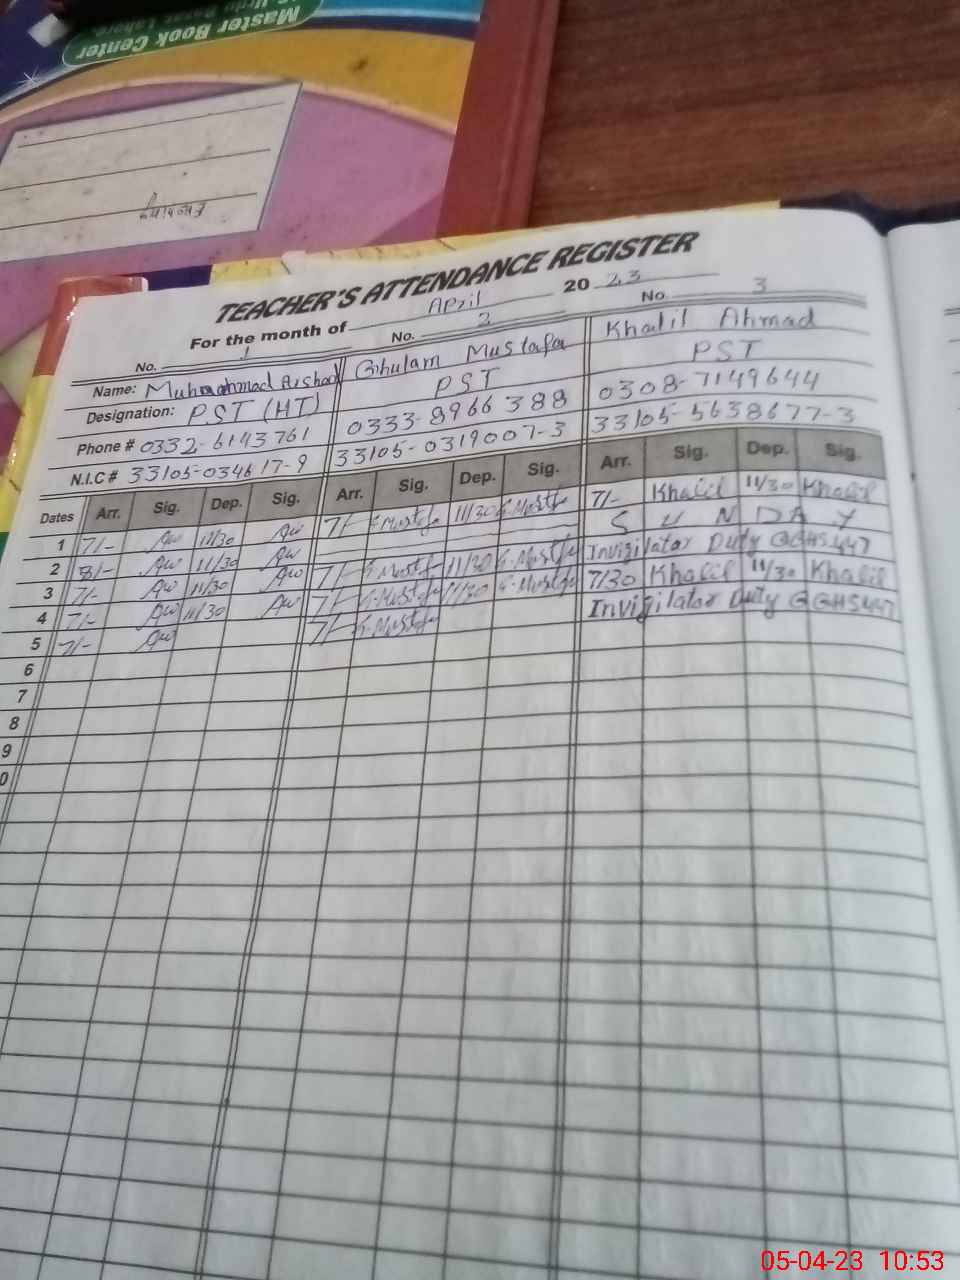 Master Book Center
Urdu Bazar Lahore
TEACHER'S ATTENDANCE REGISTER
For the month of April 2023
No. 1 No. 2 No. 3
Name: Muhaahmad Arshad Ghulam Mustafa Khalil Ahmad
Designation: PST (HT) PST PST
Phone # 0332-6143761 0333-8966388 0308-7149644
N.I.C # 33105-034617-9 33105-0319007-3 33105-5638677-3
Dates Arr. Sig. Dep. Sig. Arr. Sig. Dep. Sig. Arr. Sig. Dep. Sig.
1 7/- 11/30 7/- G.Mustafa 11/30 G.Mustafa 7/- Khalil 11/30 Khalil
2 8/- 11/30 SUNDAY
3 7/- 11/30 7/- G.Mustafa 11/30 G.Mustafa Invigilator Duty @GHS447
4 7/- 11/30 7/- G.Mustafa 11/30 G.Mustafa 7/30 Khalil 11/30 Khalil
5 7/- 7/- G.Mustafa Invigilator Duty @GHS447
6
7
8
9
0
05-04-23 10:53